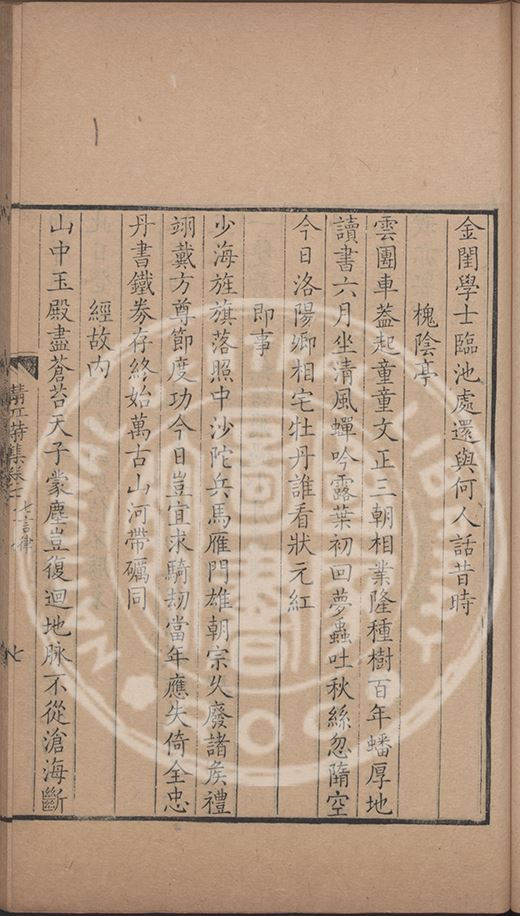 金閨學士臨池處還與何人話昔時
槐陰亭
雲團車葢起童童文正三朝相業隆種樹百年蟠厚地
讀書六月坐清風蟬吟露葉初回夢蟲吐秋絲忽隋空
今日洛陽卿相宅牡丹誰看狀元紅
即事
少海旌旗落照中沙陀兵馬雁門雄朝宗乆廢諸矦禮
翊戴方尊節度功今日豈宜求騎劫當年應失倚全忠
丹書鐵券存終始萬古山河帶礪同
經故内
山中玉殿盡蒼苔天子蒙塵豈復迴地脉不從滄海斷
集卷
七言律
七